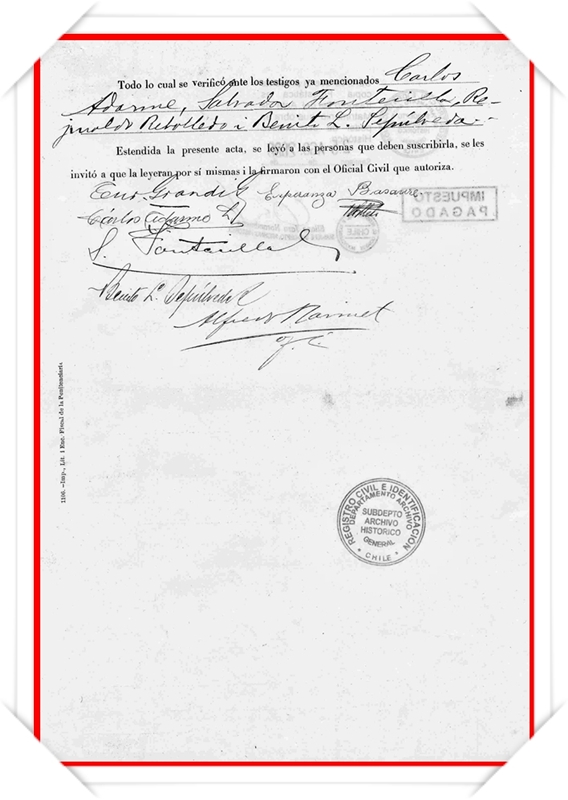 Todo lo cual se verificó ante los testigos ya mencionados Carlos
Adarme, Salvador Fontecilla, Re-
jinaldo Rebolledo i Benito L. Sepúlveda.-
Estendida la presente acta, se leyó a las personas que deben suscribirla, se les
invitó a que la leyeran por sí mismas i la firmaron con el Oficial Civil que autoriza.
Esperanza Basaure
IMPUESTO
PAGADO
Carlos
S. Fontecilla
Benito L. Sepúlveda R
Alfredo
1106.—Imp., Lit. i Enc. Fiscal de la Penitenciaría
REGISTRO CIVIL E IDENTIFICACION
DEPARTAMENTO ARCHIVO
SUBDEPTO
ARCHIVO
HISTORICO
GENERAL
* CHILE *